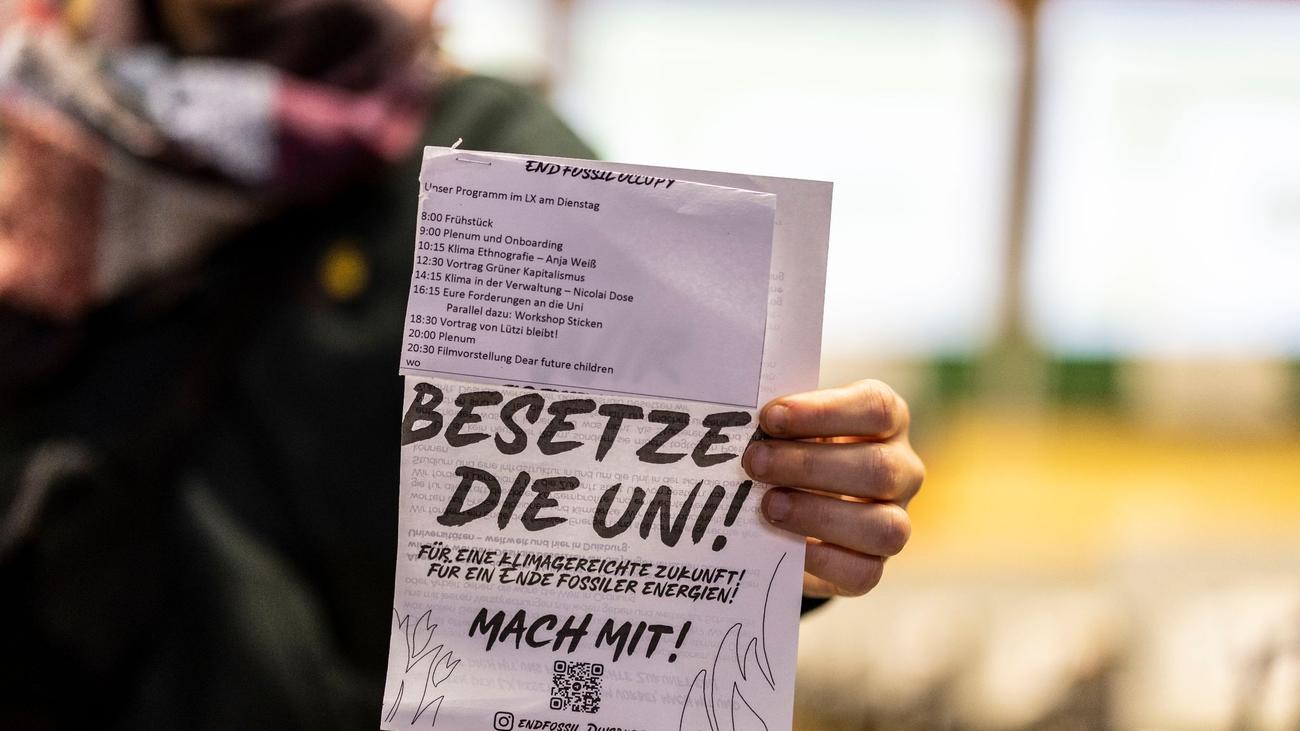 END FOSSIL OCCUPY
Unser Programm im LX am Dienstag
8:00 Frühstück
9:00 Plenum und Onboarding
10:15 Klima Ethnografie – Anja Weiß
12:30 Vortrag Grüner Kapitalismus
14:15 Klima in der Verwaltung – Nicolai Dose
16:15 Eure Forderungen an die Uni
Parallel dazu: Workshop Sticken
18:30 Vortrag von Lützi bleibt!
20:00 Plenum
20:30 Filmvorstellung Dear future children
wo
BESETZE
DIE UNI!
FÜR EINE KLIMAGEREICHTE ZUKUNFT!
FÜR EIN ENDE FOSSILER ENERGIEN!
MACH MIT!
ENDFOSSIL